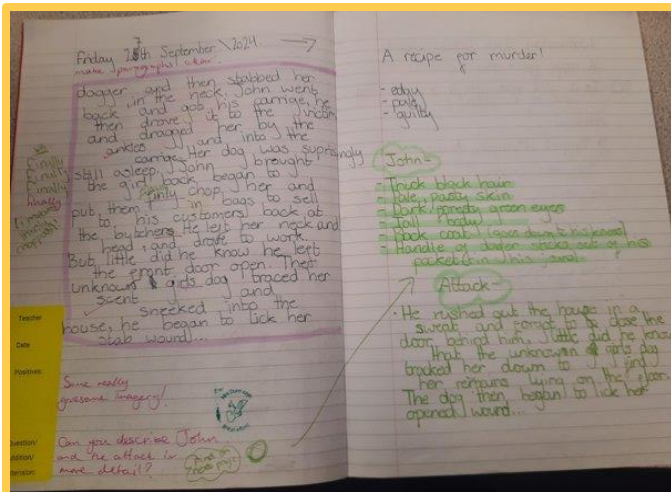 Friday 27th September 2024
make paragraphs clear.
dagger and then stabbed her
in the neck, John went
back and got his carrige, he
then drove it to the victim
and dragged her by the
ankles and into the
carrige. Her dog was suprisingly
still asleep, John brought
the girl back, began to
finly chop, her and
put, them in bags to sell
to his customers back at
the butchers. He left her neck and
head, and drove to work.
But, little did he know he left
the front door open. The
unknown girls dog traced her
scent and
sneeked into the
house, he began to lick her
stab wound...
Finally
Finally
Finally
Finally
Teacher
Date
Positives:
Some really
gruesome imagery!
Question/
Addition/
Extension:
Can you describe John
and the attack in
more detail?
And on
There page
A recipe for murder!
- edgy
- pale
- guilty
John-
- Thick black hair
- Pale, pasty skin
- Dark, green eyes
- Tall body
- Handle of dagger sticks out of his
pocket
Attack-
He rushed out the house in a
sweat and forgot to close the
door behind him, little did he know
that the unknown girls dog
tracked her down to find
her remains lying on the floor.
The dog then began to lick her
opened wound...